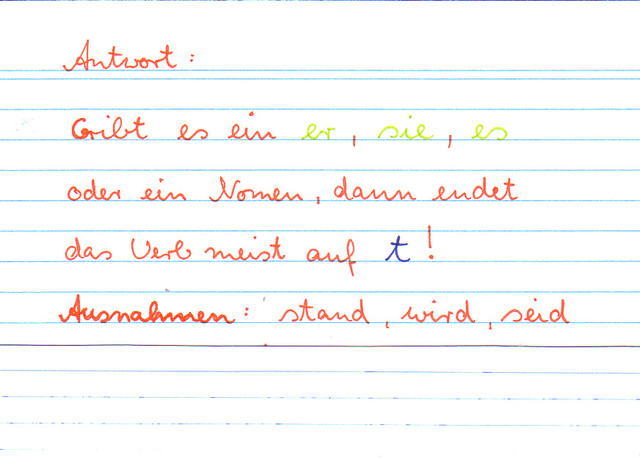 Antwort:
Gibt es ein er, sie, es
oder ein Nomen, dann endet
das Verb meist auf t!
Ausnahmen: stand, wird, seid